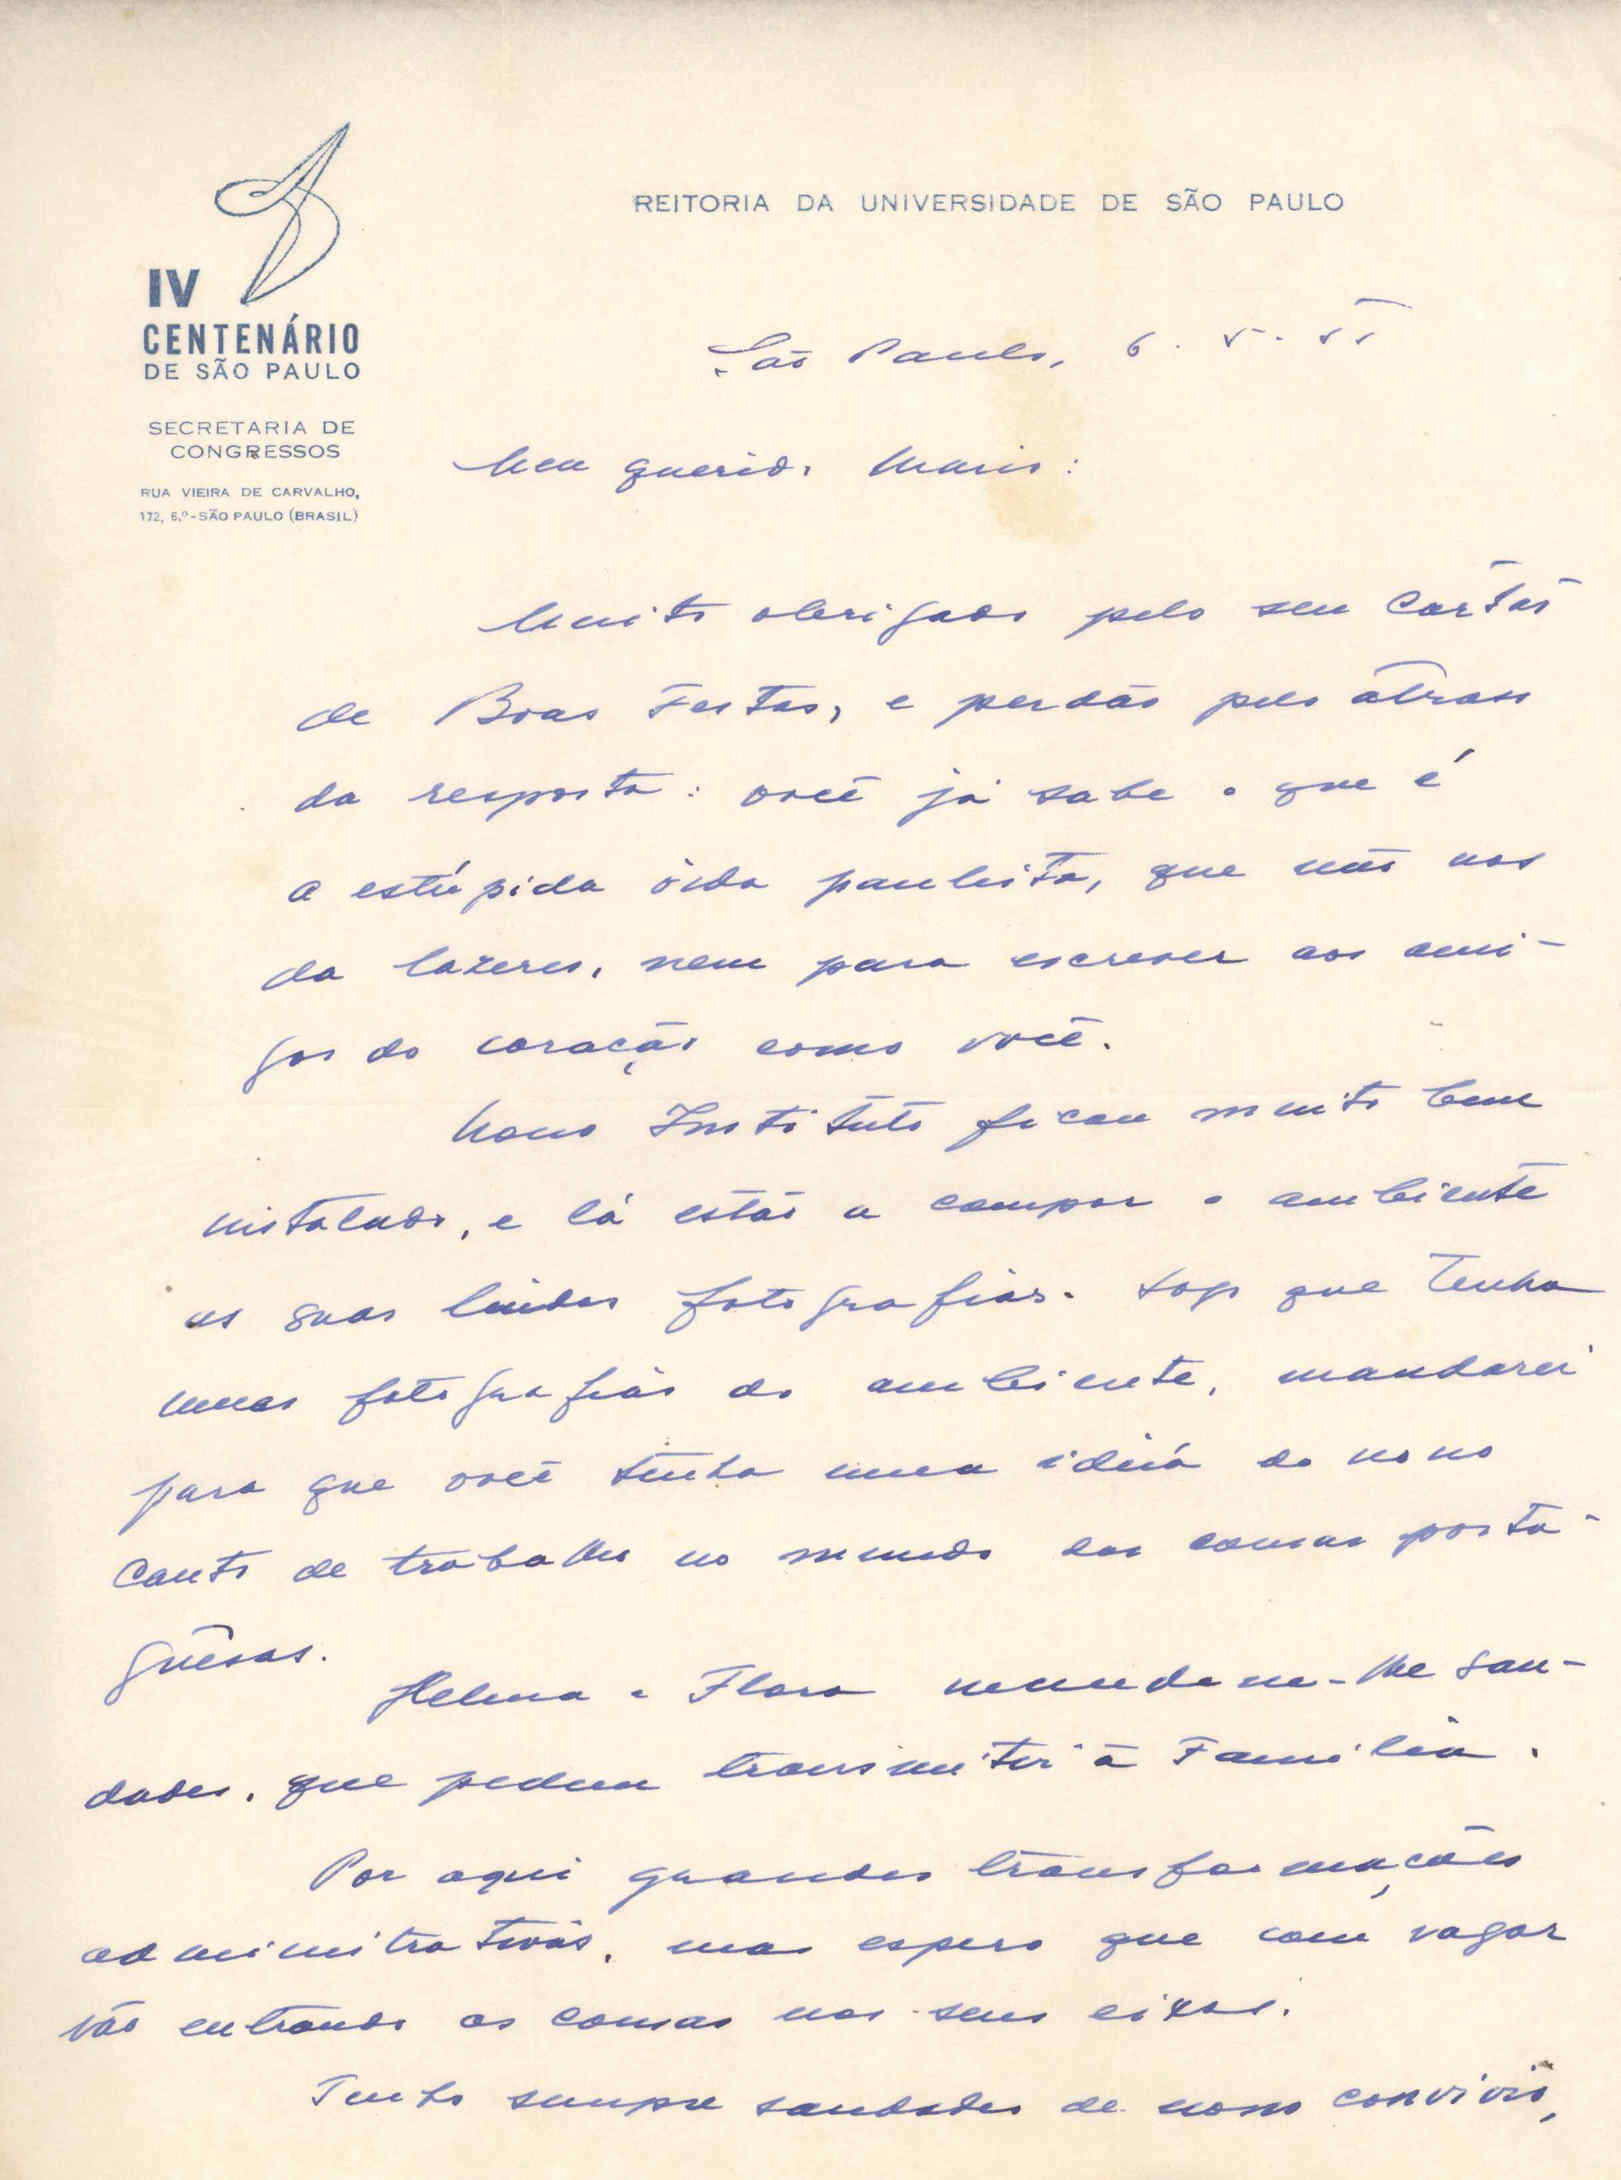 IV
CENTENÁRIO
DE SÃO PAULO
SECRETARIA DE
CONGRESSOS
RUA VIEIRA DE CARVALHO,
172, 6.º - SÃO PAULO (BRASIL)
REITORIA DA UNIVERSIDADE DE SÃO PAULO
São Paulo, 6. V. 55
Meu querido Mario:
Muito obrigado pelo seu cartão
de Boas Festas, e perdão pelo atraso
da resposta: você já sabe o que é
a estúpida vida paulista, que não nos
da lazeres, nem para escrever aos ami-
gos do coração como você.
Nosso Instituto ficou muito bem
instalado, e lá estão a compor o ambiente
as suas lindas fotografias. Logo que tenha
umas fotografias do ambiente, mandarei
para que você tenha uma ideiá do nosso
canto de trabalho no mundo das cousas portu-
guêsas.
Helena e Flora mandam-lhe sau-
dades, que pedem transmitir à Família.
Por aqui grandes transformações
administrativas, mas espero que com vagar
vão entrando as cousas nos seus eixos.
Tenho sempre saudades de nosso convivio,